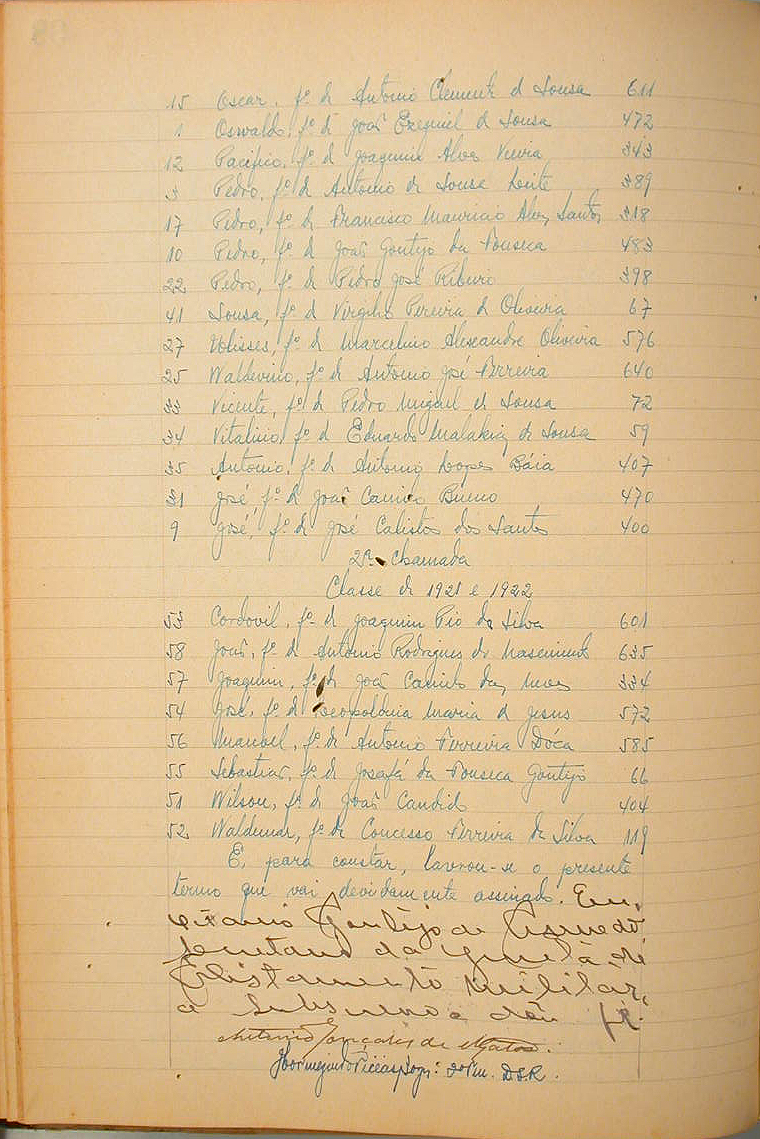 15 Oscar, fº. de Antonio Clemente d Sousa 611
1 Oswaldo, fº. de João Ezequiel d Sousa 472
12 Pacifico, fº. de Joaquim Alves Vieira 343
3 Pedro, fº. de Antonio de Sousa Leite 389
17 Pedro, fº. de Francisco Mauricio Alves Santos 318
10 Pedro, fº. de João Gontijo da Fonseca 483
22 Pedro, fº. de Pedro José Ribeiro 398
41 Sousa, fº. d Virgilio Pereira d Oliveira 67
27 Ulisses, fº. d Marcelino Alexandre Oliveira 576
25 Waldevino, fº. de Antonio José Ferreira 640
33 Vicente, fº. de Pedro Miguel de Sousa 72
34 Vitalino, fº. d Eduardo de Sousa 59
35 Antonio, fº. d Antonio Lopes Báia 407
31 José, fº. de João Camilo Bueno 470
9 José, fº. de José Calistos dos Santos 400
2ª. Chamada
Classe de 1921 e 1922
53 Cordovil, fº. d Joaquim Pio da Silva 601
58 João, fº. d Antonio Rodrigues do Nascimento 635
57 Joaquim, fº. de João Camilo das Neves 334
54 José, fº. d Leopoldina Maria d Jesus 572
56 Manoel, fº. de Antonio Ferreira Dóca 585
55 Sebastião, fº. de Josafá da Fonseca Gontijo 66
51 Wilson, fº. de João Candido 404
52 Waldemar, fº. de Concesso Ferreira da Silva 119
E, para constar, lavrou-se o presente
termo que vai devidamente assinado. Eu,
Gontijo de Azevedo
Secretario da Junta de
Alistamento Militar,
a subscrevo e dou fé.
Antonio Gonçalves de Matos.
DSR.